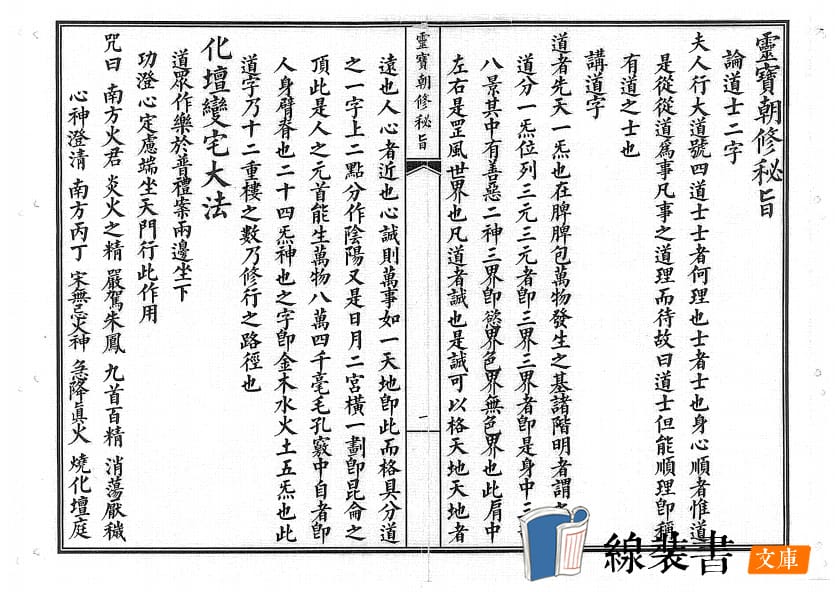 靈寶朝修秘旨
論道士二字
夫人行大道號四道士士者何理也士者士也身心順者惟道
是從從道為事凡事之道理而待故曰道士但能順理卽稱
有道之士也
講道字
道者先天一炁也在脾脾包萬物發生之基諸階明者謂之
道分一炁位列三元三元者卽三界三界者卽是身中三
八景其中有善惡二神三界卽慾界色界無色界也此肩中
左右是罡風世界也凡道者誠也是誠可以格天地天地者
靈寶朝修秘旨
一
遠也人心者近也心誠則萬事如一天地卽此而格具分道
之一字上二點分作陰陽又是日月二宮橫一劃卽昆侖之
頂此是人之元首能生萬物八萬四千毫毛孔竅中自者卽
人身臂脊也二十四炁神也之字卽金木水火土五炁也此
道字乃十二重樓之數乃修行之路徑也
化壇變宅大法
道眾作樂於普禮案兩邊坐下
功澄心定慮端坐天門行此作用
咒曰 南方火君 炎火之精 嚴駕朱鳳 九首百精 消蕩厭穢
心神澄清 南方丙丁 宋無忌火神 急降真火 燒化壇庭
線装書
文庫